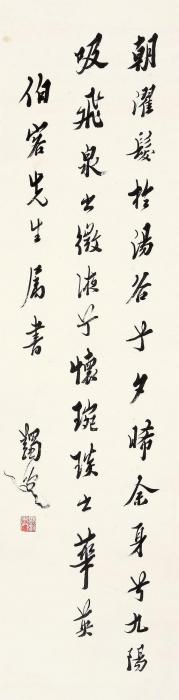 朝濯髮於湯谷兮夕晞余身兮九陽
吸飛泉之微液兮懷琬琰之華英
伯容先生属書
蠲叟